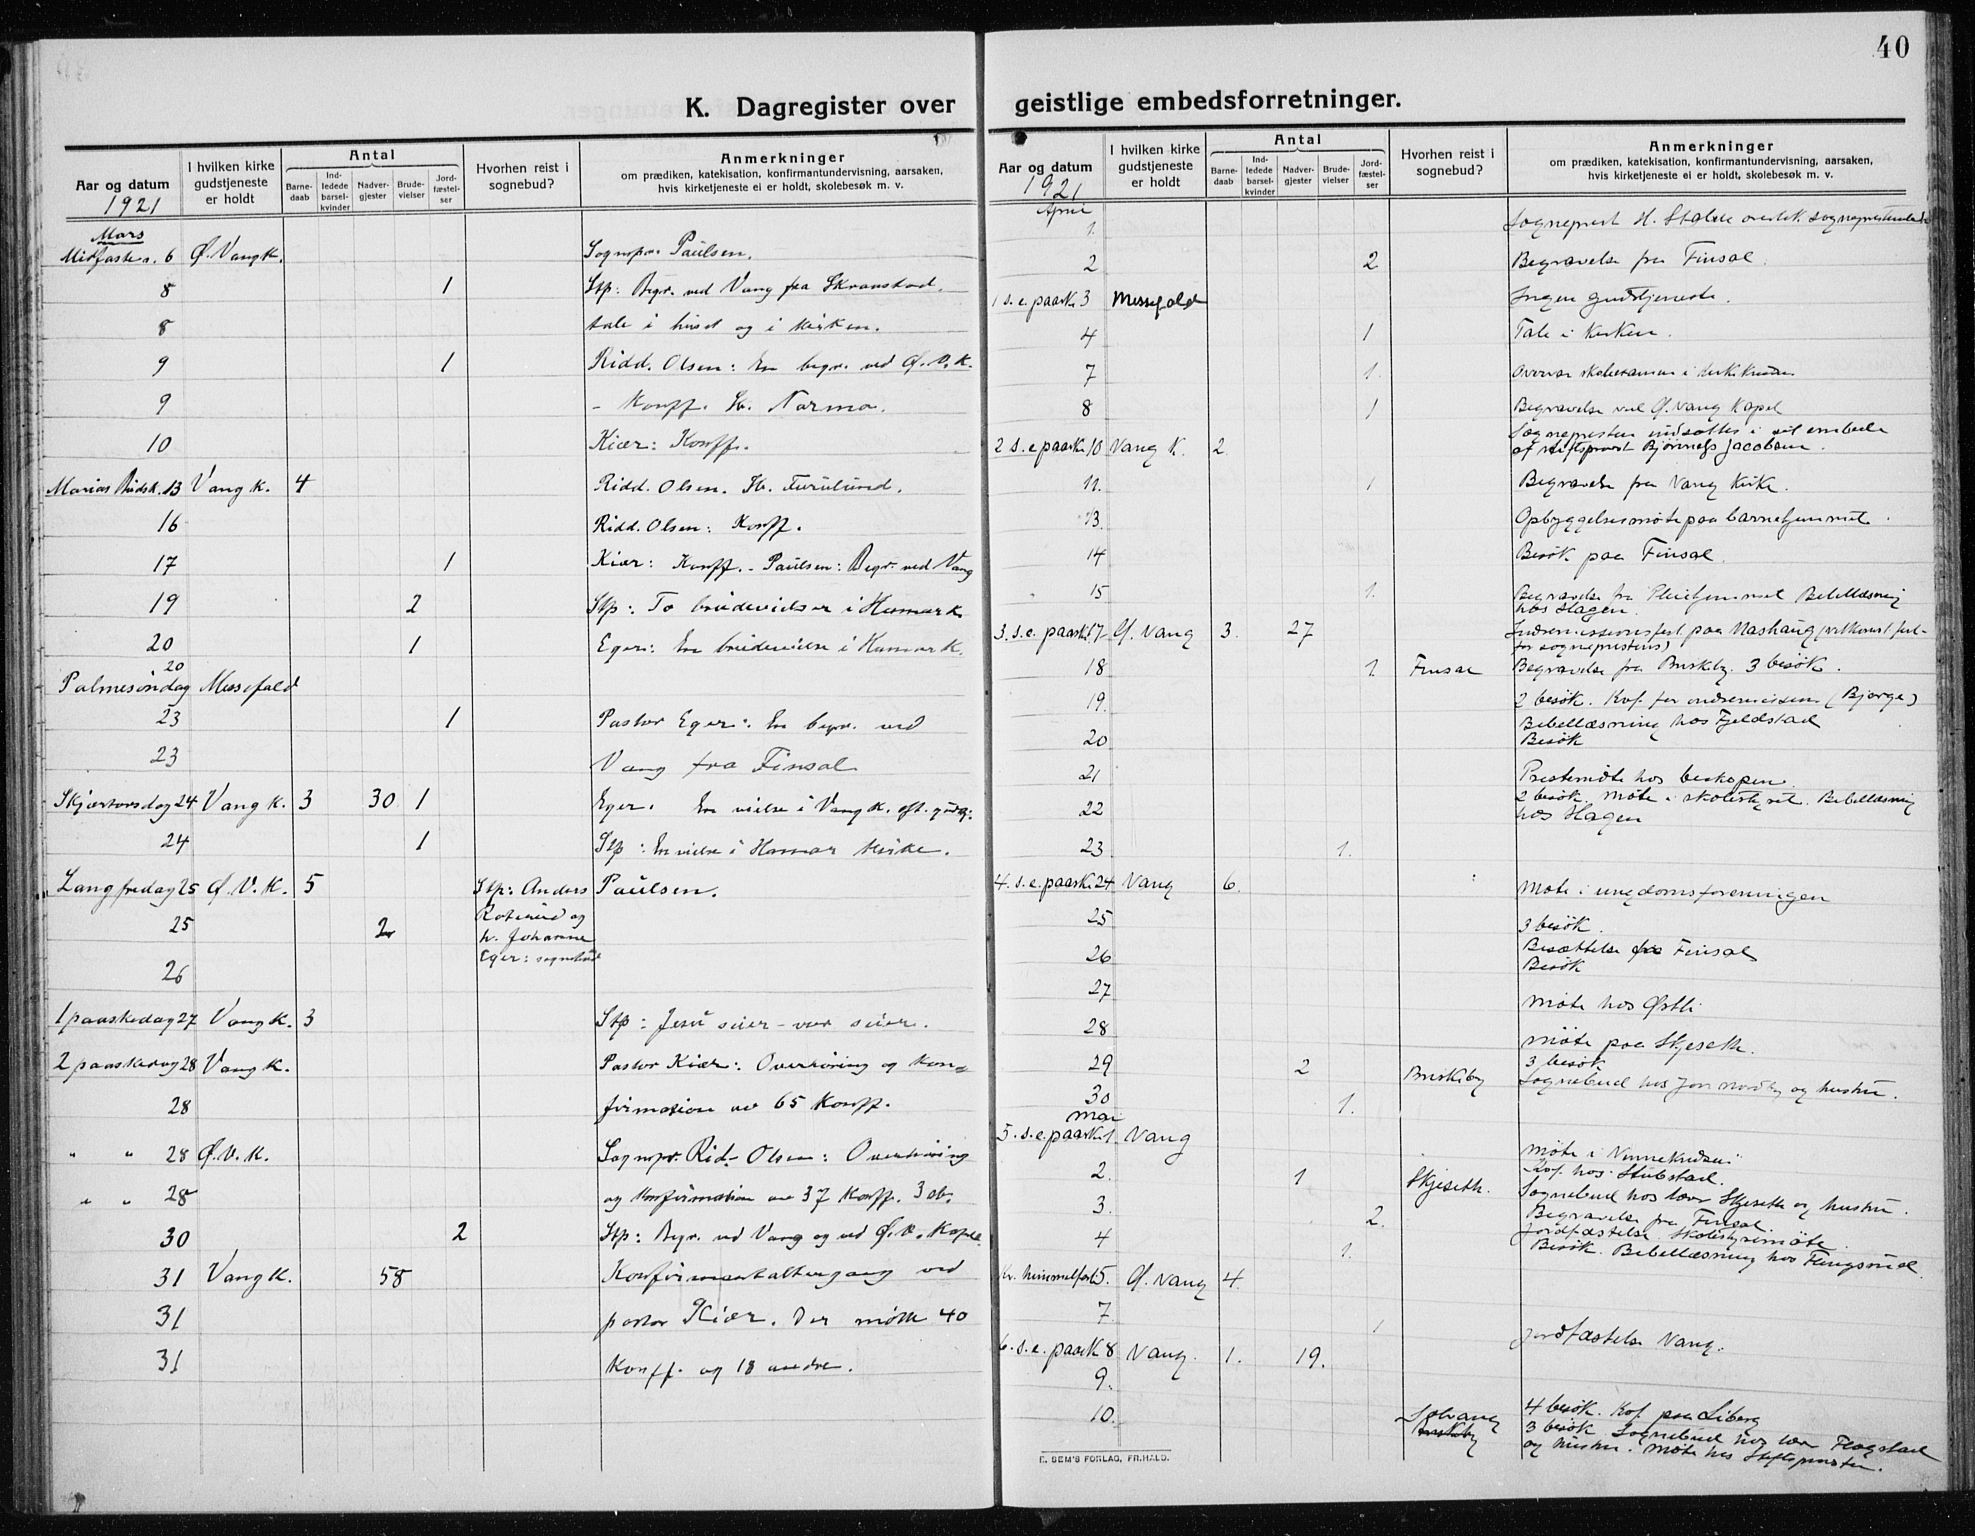 40
K. Dagregister over geistlige embedsforretninger.
Aar og datum
1921
I hvilken kirke gudstjeneste er holdt
Antal
Barne-daab
Ind-ledede barsel-kvinder
Nadver-gjester
Brude-vielser
Jord-fæstel-ser
Hvorhen reist i sognebud?
Anmerkninger
om prædiken, katekisation, konfirmantundervisning, aarsaken,
hvis kirketjeneste ei er holdt, skolebesøk m. v.
Mars
Midfastes. 6 Ø. Vang k. Sognepr. Paulsen.
8 1 Stp: Begr. ved Vang fra Skramstad.
8 tale i huset og i kirken.
9 1 Ridd. Olsen: En begr. ved Ø. V. K.
9 - Konff. Norma.
10 Kiær: Konff.
Marias Budsk. 13 Vang k. 4 Ridd. Olsen. Furulund.
16 Ridd. Olsen: Konff.
17 1 Kiær: Konff. - Paulsen: Begr. ved Vang
19 2 Stp: To brudevielser i Hamar k.
20 1 Eger: En brudevielse i Hamar k.
20
Palmesøndag Messefald
23 1 Pastor Eger: En begr. ved
23 Vang fra Finsal
Skjærtorsdag 24 Vang k. 3 30 1 Eger. En vielse i Vang k. eft. gudstj.
24 1 Stp: En vielse i Hamar kirke.
Langfredag 25 Ø. V. K. 5 Stp: Anders Paulsen.
25 2 og
h. Johanne
26 Eger: sognebud
1 paaskedag 27 Vang k. 3 Stp: Jesu seier - vor seier.
2 paaskedag 28 Vang k. Pastor Kiær: Overhøring og kon-
28 firmasion av 65 konff.
" " 28 Ø. V. K. Sognepr. Rid. Olsen: Overhøring
" " 28 og konfirmation av 37 konff.
30 2 Stp: Begr. ved Vang og ved Ø. V. Kapel.
31 Vang k. 58 Konfirmantaltergang ved
31 pastor Kiær. Der møtte 40
31 konff. og 18 andre.
Aar og datum
1921
I hvilken kirke gudstjeneste er holdt
Antal
Barne-daab
Ind-ledede barsel-kvinder
Nadver-gjester
Brude-vielser
Jord-fæstel-ser
Hvorhen reist i sognebud?
Anmerkninger
om prædiken, katekisation, konfirmantundervisning, aarsaken,
hvis kirketjeneste ei er holdt, skolebesøk m. v.
April
1. Sogneprest H.
2 2 Begravelse fra Finsal.
1 s. e. paask. 3 Messefald Ingen gudstjeneste.
4 1 Tale i kirken.
7 1. Overvar skoleeksamen i
8 1 Begravelse ved Ø. Vang kapel
2 s. e. paask. 10 Vang k. 2. Sognepresten indsattes i sit embede
af stiftsprovst Jacobsen.
11. 1 Begravelse fra Vang kirke.
13. Opbyggelsesmøte paa barnehjemmet.
14 Besøk paa Finsal.
15 1. Begravelse fra Pleiehjemmet Bibellæsning
hos Hagen.
3. s. e. paask. 17 Ø. Vang 3. 27 Indremissionsfest paa Nashaug (velkomstfest
for sognepresten)
18 1. Finsal Begravelse fra Briskeby. 3 besøk.
19. 2 besøk. Kof. for indremissionen (Bjørge)
Bibellæsning hos Fjeldstad
20 Besøk
21 Prestemøte hos biskopen.
22 2 besøk. Møte i skolestyret. Bibellæsning
hos Hagen
23 1.
4. s. e. paask. 24 Vang 6. Møte i ungdomsforeningen
25 3 besøk.
26 Finsal
Besøk
27 Møte hos Østli
28 Møte paa Skjeseth.
29 2 Briskeby 3 besøk
Sognebud hos Jon Nordby og hustru.
30 1.
Mai
5. s. e. paask. 1. Vang Møte i
2. 1 Skjeseth. Kof. hos Stubstad.
Sognebud hos Skjeseth og hustru.
3. 2. Begravelse fra Finsal.
Jordfæstelse. Skolestyremøte.
4 1. Besøk. Bibellæsning hos
Kr. himmelfart 5. Ø. Vang 4.
7. 1 Jordfæstelse Vang.
6. s. e. paask. 8 Vang. 1. 19.
9.
10. Solvang 4 besøk. Kof. paa Liberg
Briskeby 3 besøk Sognebud hos Flagstad
og hustru. Møte hos Stiftsprosten.
E. SEM'S FORLAG, FR.HALD.